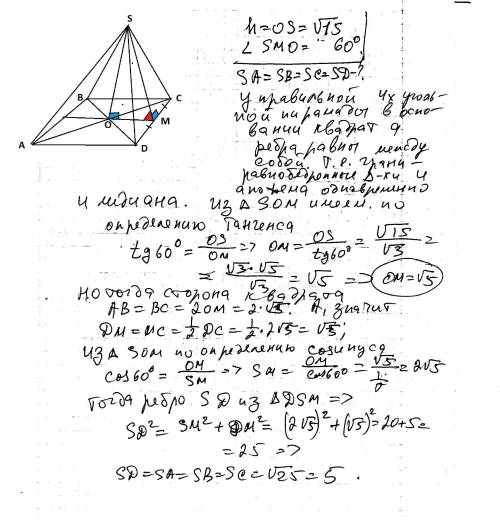 S
h=OS=√15
∠SMO= 60°
SA=SB=SC=SD-?
B
C
O
M
A
D
У правильной 4х уголь-
ной пирамиды в осно-
вании квадрат а
ребра равны между
собой, т.е. грани-
равнобедренные Δ-ки и
апофема одновременно
и медиана. Из Δ SOM имеем по
определению тангенса
tg60°= OS/OM => OM= OS/tg60° = √15/√3 =
= √3·√5/√3 = √5 => OM=√5
Но тогда сторона квадрата
AB=BC=2OM=2·√5. А, значит
DM=MC=1/2 DC=1/2·2√5=√5;
Из Δ SOM по определению косинуса
cos60°= OM/SM => SM= OM/cos60° = √5/ = 2√5
Тогда ребро SD из ΔDSM =>
SD²= SM²+DM²=(2√5)²+(√5)²=20+5=
=25 =>
SD=SA=SB=SC=√25=5.